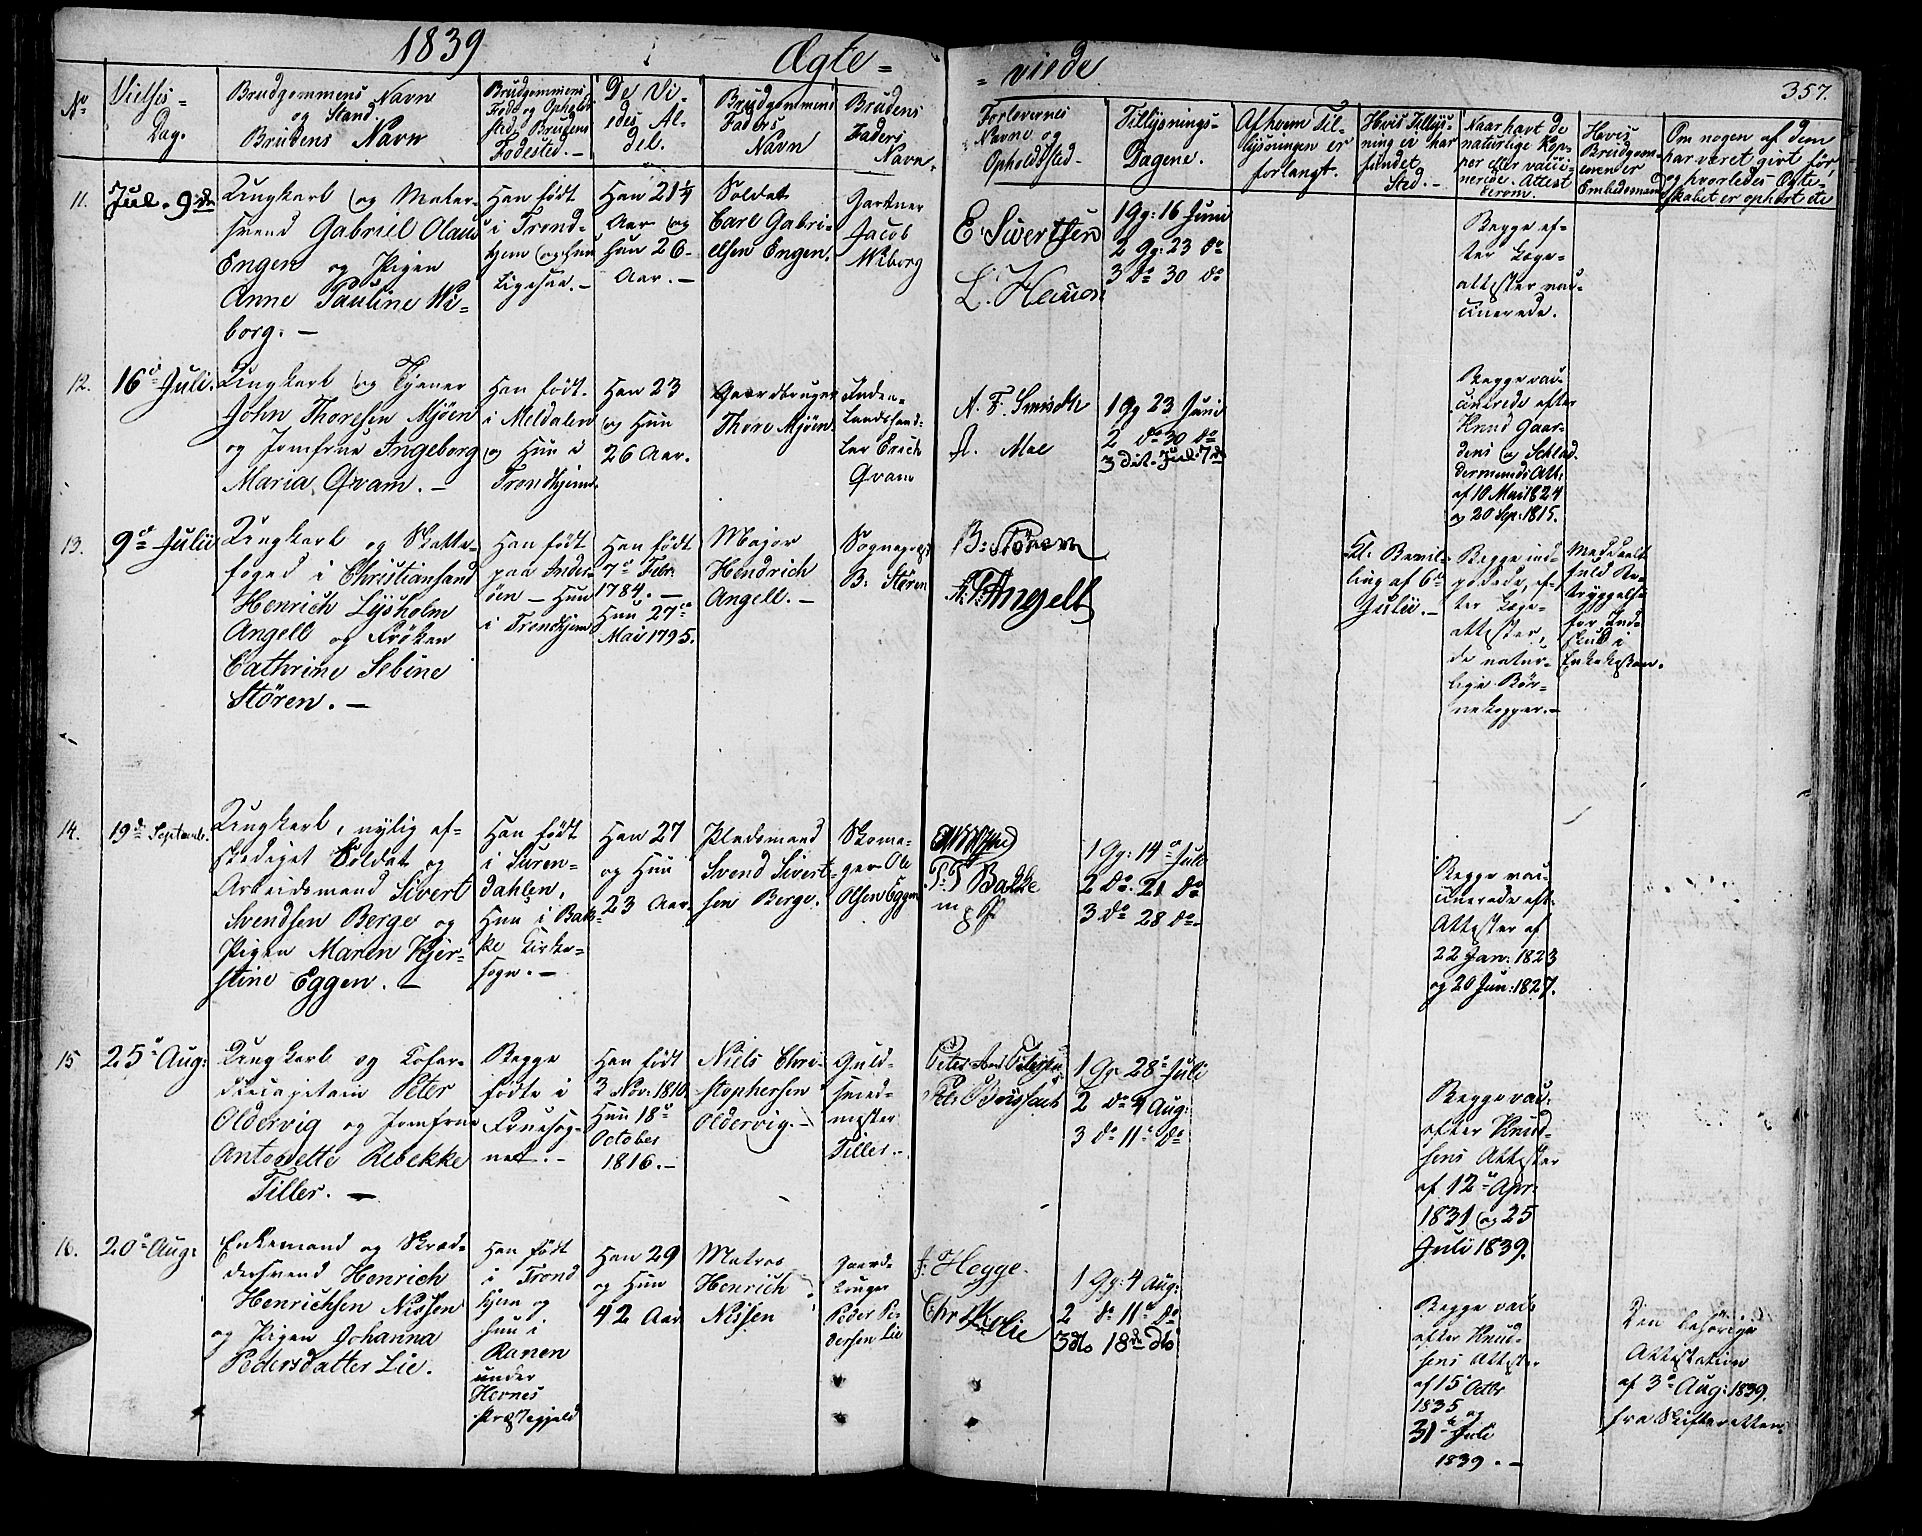 1839
Ægte=
=viede
357.
No
Vielses-
Dag.
Brudgommens Navn
og Stand.
Brudens Navn
Brudgommens
Føde og Opholds
Sted, Brudens
Fødested.—
De Vi-
edes Al-
der.
Brudgommens
Faders
Navn
Brudens
Faders
Navn.
Forlovernes
Navne og
Opholdssted.
Tillysnings-
Dagene.
Af hvem Til-
lysningen er
forlangt.
Hvis Tillys-
ning ei har
fundet
Sted.—
Naar havt de
naturlige Kop-
per eller vacci-
nerede. Attest
derom.
Hvis
Brudgom-
men er
Embedsmand
Om nogen af dem
har været givt før,
og hvorledes Ægte-
skabet er ophørt de
11.
Jul. 9de
Ungkarl og Mater-
svend Gabriel Olaus
Engen og Pigen
Anne Pauline Wi-
borg.—
Han født
i Trond-
hjem og hun
Ligesaa.—
Han 21½
Aar og
hun 26
Aar.—
Soldat
Carl Gabri-
elsen Engen.
Gartner
Jacob
Wiborg
E. Sivertsen
L.
1 Gg: 16 Juni
2 Gg: 23 do
3 do 30 do
Begge ef-
ter Læge-
attester vac-
cinerede.
12.
16d Juli.
Ungkarl og Tjener
John Thoresen Mjöen
og Jomfrue Ingeborg
Maria Qvam.—
Han født
i Meldalen
og Hun i
Trondhjem.
Han 23
og Hun
26 Aar.
Gaardbruger
Thore Mjöen
Inden-
landshand-
ler Erich
Qvam
A. F. Smidth
A. Moe
1 Gg 23 Juni
2 do 30 do
3 dit. Jul. 7de
Begge vac-
cinerede efter
Knud Gaar-
dens og Schlad
dermunds Att:
af 10 Mai 1824
og 20 Sep: 1815.
13.
9de Julii
Ungkarl og Skatte-
foged i Christiansand
Henrich Lÿsholm
Angell og Frøken
Cathrine Sebine
Stören.—
Han født
paa Inder-
öen — Hun
i Trondhjem
Han født
7de Febr.
1784.—
Hun 27de
Mai 1795.
Major
Hendrich
Angell.—
Sognepræst
B. Stören
B. Stören
A: Angell
Kl. Bevil-
ling af 6te
Julii.—
Begge ind-
podede, ef-
ter Læge-
attester,
de natur-
lige Bør-
nekopper.—
Meddeelt
fuld Be-
tryggelse
for Ind-
skud i
Enkekassen.
14.
19de Septemb.
Ungkarl, nylig af-
skediget Soldat og
Arbeidsmand Sivert
Svendsen Berge og
Pigen Maren Kjer-
stine Eggen.—
Han født
i Suren-
dahlen,
Hun i Bak-
ke Kirke-
sogn.—
Han 27
og Hun
23 Aar.
Pladsmand
Svend Sivert-
sen Berge.
Skoma-
ger Ole
Olsen Eggen
P: T Bakke
m p P.
1 Gg: 14de Juli
2 do. 21 do
3 do 28 do
Begge vac-
cinerede eft.
Attester af
22 Jan: 1823
og 20 Jun: 1827.
15
25de Aug:
Ungkarl og Kofar-
diecapitain Peter
Oldervig og Jomfrue
Antonette Rebekke
Tiller.—
Begge
fødte i
Fruesog-
net.—
Han født
2 Nov: 1810
Hun 18de
October
1816.—
Niels Chri-
stophersen
Oldervig.—
Guld-
smed-
mester
Tiller.
1 Gg 28de Juli
2 do 4 Aug:
3 do 11te do
Begge vac:
efter Knud-
sens Attester
af 12te Apr:
1831 og 25
Juli 1839.
16.
20de Aug:
Enkemand og Skræd-
dersvend Henrich
Henrichsen Nissen
og Pigen Johanna
Pedersdatter Lie.
Han født
i Trond
hjem og
hun i
Ranen
under
Hernes
Præstegjeld
Han 29
og Hun
42 Aar
Matros
Henrich
Nissen
Gaard-
bruger
Peder Pe-
dersen Lie
J. Hegge.
Chr
1 Gg: 4 Aug:
2 do 11te do
3 dto 18de dto
Begge vac:
efter Knud-
sens Attester
af 15 Octbr
1835 og
31te Juli
1839.—
Den behørige
Attestation
af 3de Aug: 1839.
fra Skifteretten.